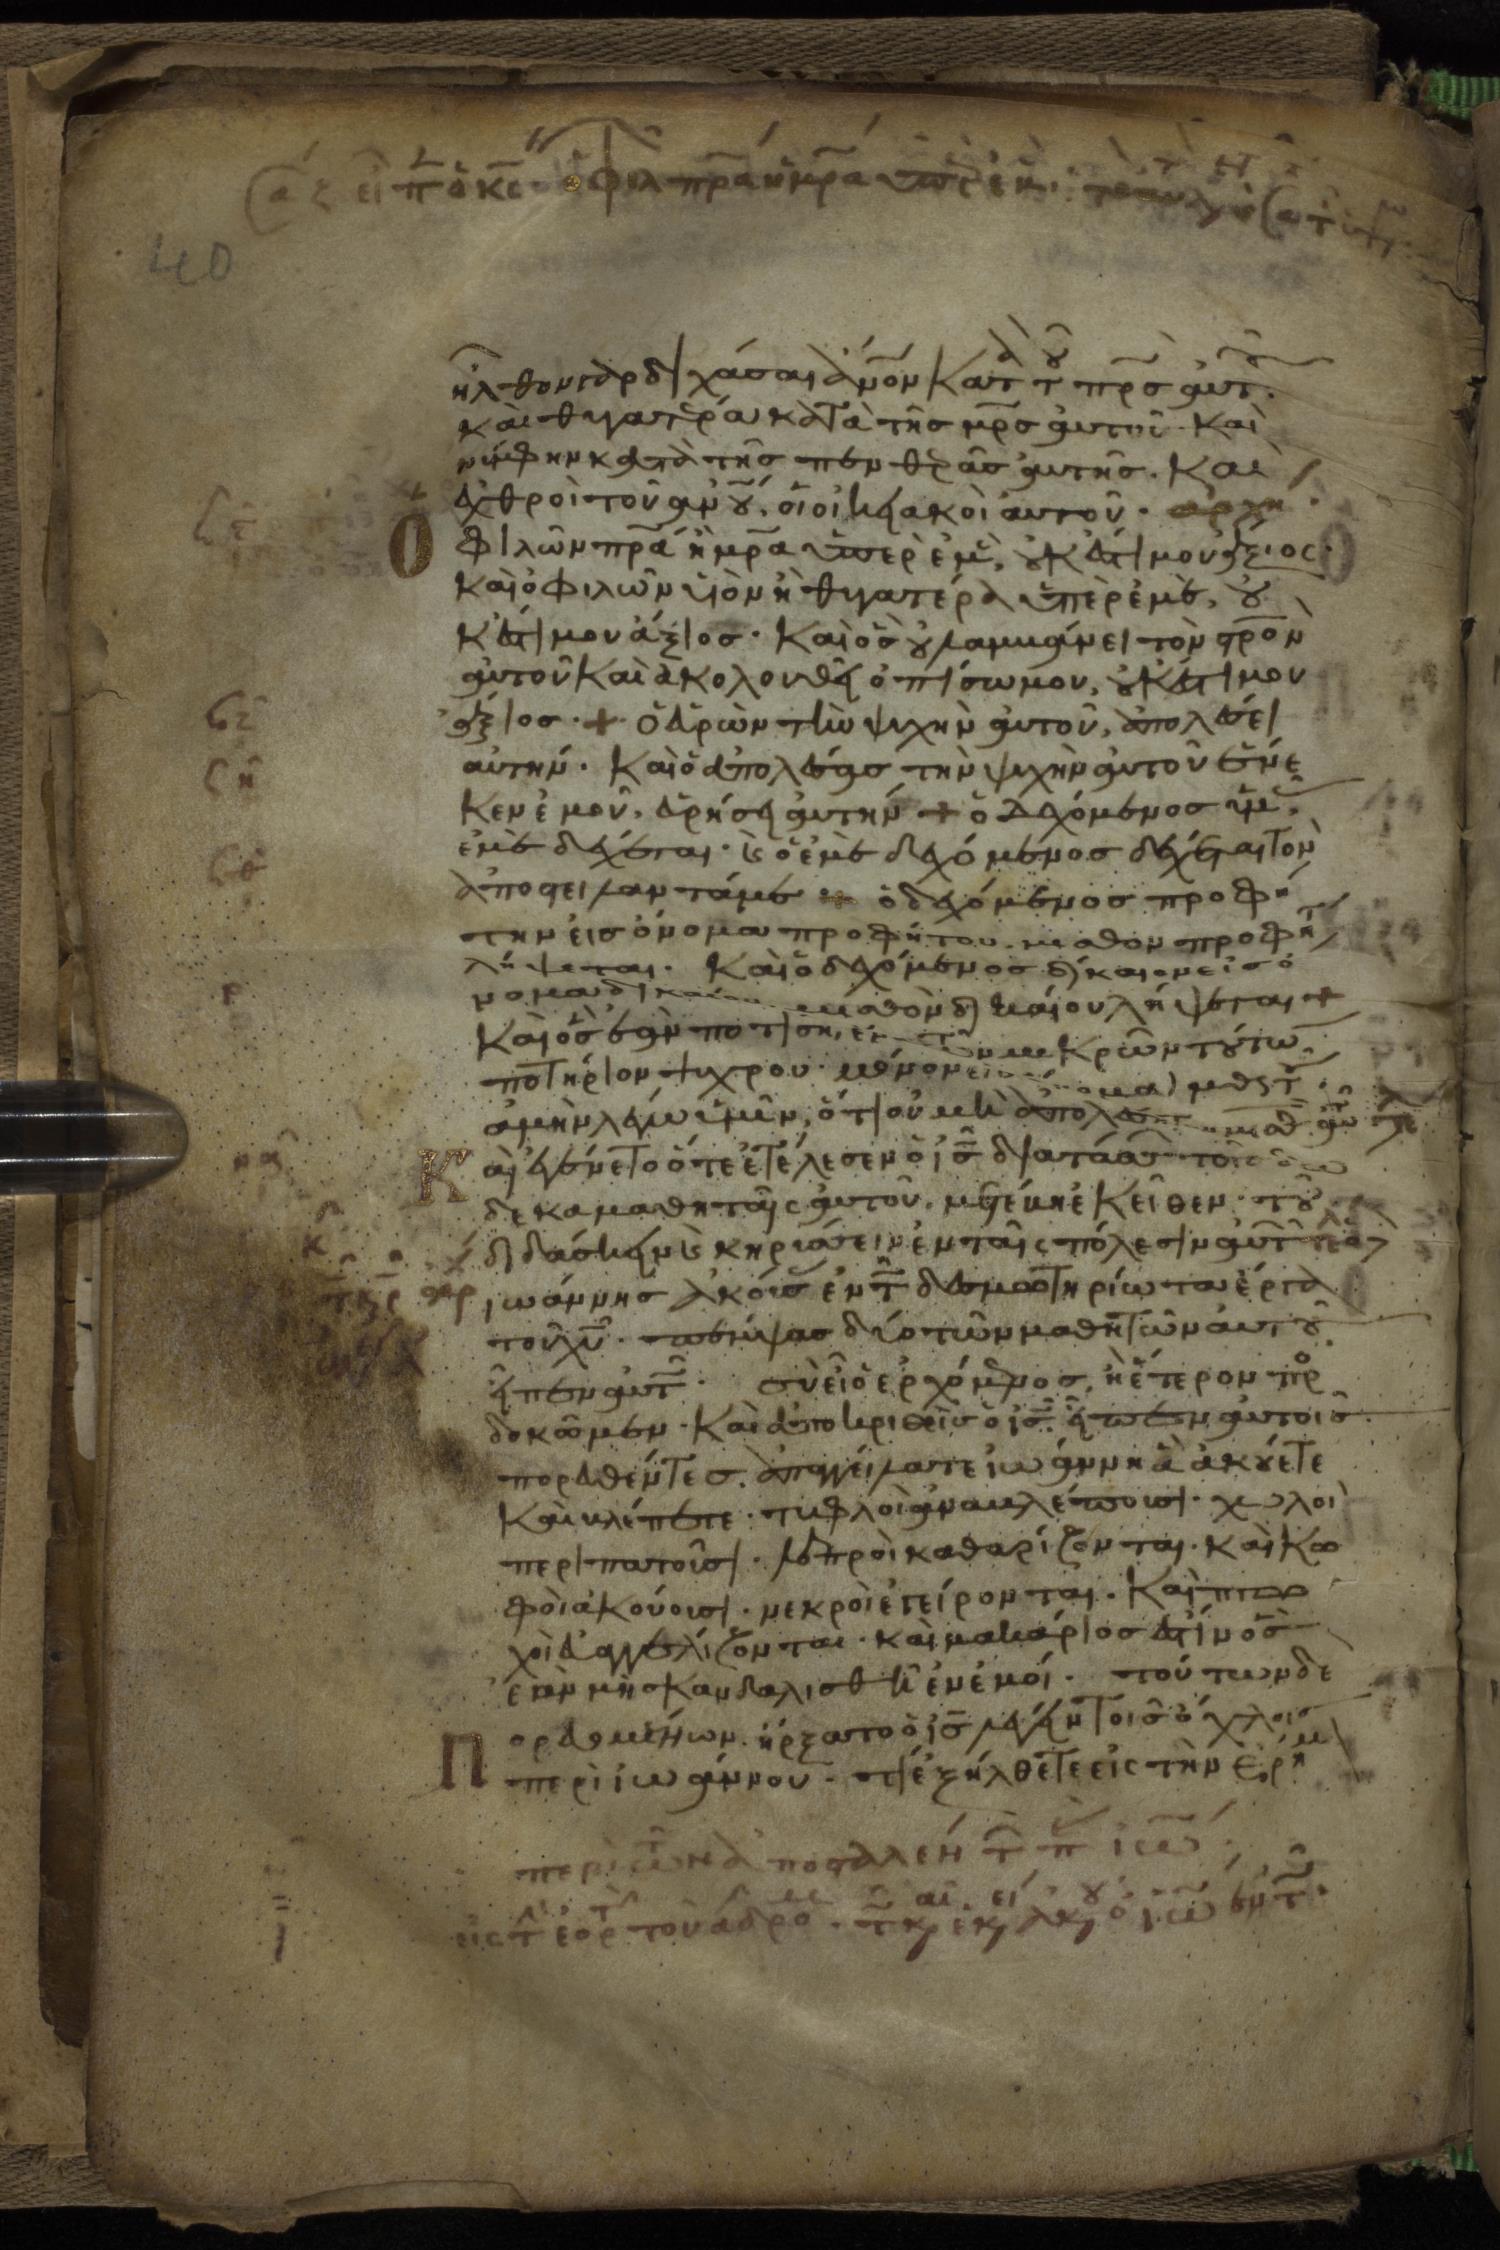 ἦλθον γὰρ διχάσαι ἄνον κατὰ τοῦ πρσ αὐτοῦ.
καὶ θυγατέρα κατὰ τῆς μρσ αὐτῆς. Καὶ
νύμφην κατὰ τῆς πενθερᾶς αὐτῆς. Και
ἐχθροὶ τοῦ ανου, οἱ οἰκειακοὶ αυτοῦ. αρχη
Ο φιλῶν πρα ἢ μρα ὑπερ ἐμὲ, οὐκ ἔστι μου ἄξιος.
καὶ ὁ φιλῶν υἱὸν ἢ θυγατέρα ὑπὲρ ἐμὲ, οὐ
κ ἔστι μου ἄξιος. Καὶ ὃς οὐ λαμβάνει τὸν στρον
αὐτοῦ Καὶ ἀκολουθεῖ ὀπίσω μου, οὐκ ἔστι μου
ἄξιος. + ὁ εὑρὼν τὴν ψυχὴν αὐτοῦ, ἀπολέσει
αὐτήν. Καὶ ὁ ἀπολέσας τὴν ψυχὴν αὐτοῦ ἕνε
κεν ἐμοῦ, εὑρήσει αὐτήν + ὁ δεχόμενος ὑμᾶς,
ἐμὲ δέχεται. καὶ ὁ ἐμὲ δεχόμενος δέχεται τὸν
ἀποστείλαντά με + ὁ δεχόμενος προφή
την εἰς ὄνομα προφήτου μισθὸν προφήτ
λήψεται. Καὶ ὁ δεχόμενος δίκαιον εἰς ὄ
νομα δικαίου μισθὸν δικαίου λήψεται +
Καὶ ὃς ἐὰν ποτίσῃ ἕνα τῶν μικρῶν τούτων
ποτήριον ψυχροῦ μόνον εἰς ὄνομα μαθητ.
ἀμὴν λέγω ὑμῖν, ὅτι οὐ μὴ ἀπολέσῃ τὸν μισθ αὐτοῦ
Καὶ ἐγένετο ὅτε ἐτέλεσεν ὁ ις διατάσσων τοῖς δώ
δεκα μαθηταῖς αὐτοῦ, μετέβη ἐκεῖθεν τοῦ
διδάσκειν καὶ κηρύσσειν ἐν ταῖς πόλεσιν αὐτῶν
ιωάννης ἀκούσας ἐν τῷ δεσμωτηρίω τα ἔργα
τοῦ χυ. πέμψας δύο τῶν μαθητῶν αυτοῦ
εἶπεν αὐτῷ. σὺ εἶ ὁ ἐρχόμενος, ἢ ἕτερον προσ
δοκῶμεν. Καὶ ἀποκριθεὶς ὁ ις εἶπεν αὐτοῖς
πορευθέντες. ἀπαγγείλατε ἰωάννη ἃ ἀκούετε
Καὶ βλέπετε. τυφλοὶ ἀναβλέπουσι. χωλοὶ
περιπατοῦσι. λεπροὶ καθαρίζονται. καὶ κω
φοὶ ἀκούουσι. νεκροὶ ἐγείρονται. Καὶ πτω
χοὶ εὐαγγελίζονται. καὶ μακάριος ἐστὶν ὃς
ἐὰν μὴ σκανδαλισθῇ ἐν ἐμοί. τούτων δε
Πορευομένων. ἤρξατο ὁ ις λέγειν τοῖς ὄχλοις
περὶ ἰωάννου. τί ἐξήλθετε εἰς τὴν ἔρημ